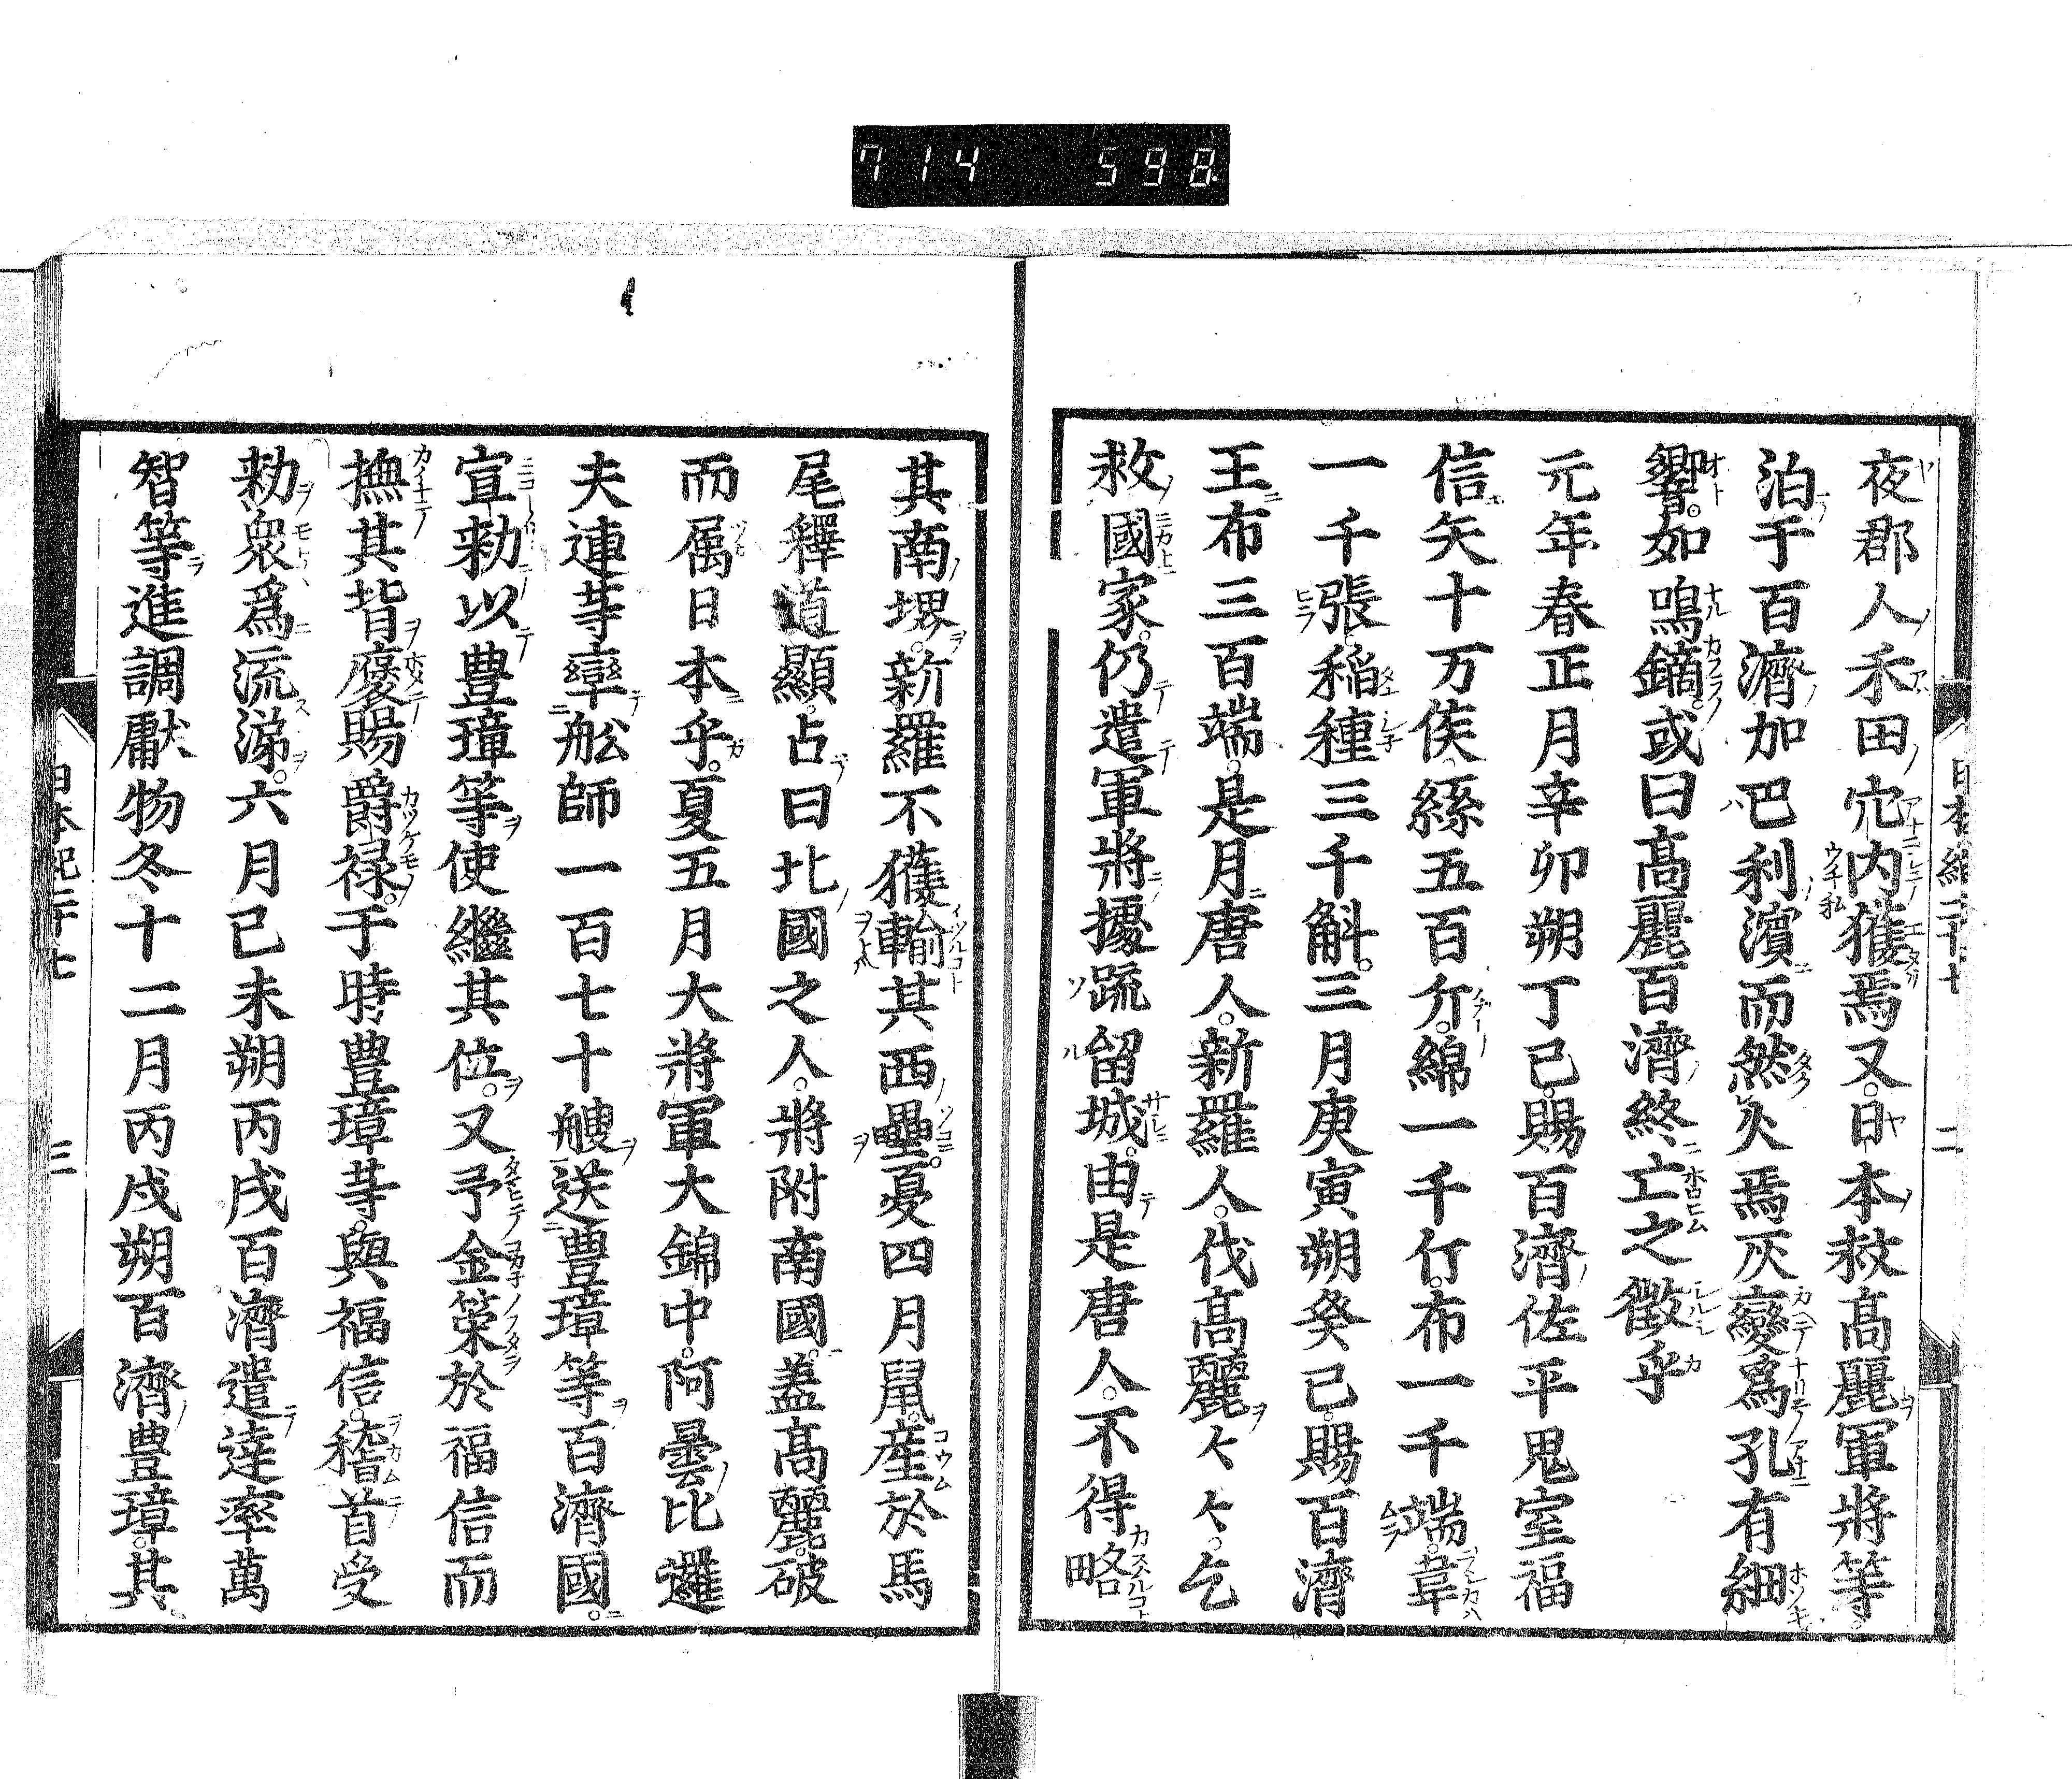 714 598
夜郡人禾田穴内獲焉又日本救高麗軍將等
泊于百濟加巴利濵而然火焉灰變爲孔有細
響如鳴鏑或曰高麗百濟終亡之徵乎
元年春正月辛卯朔丁巳賜百濟佐平鬼室福
信矢十万侯絲五百斤綿一千斤布一千端韋
一千張稲種三千斛三月庚寅朔癸巳賜百濟
王布三百端是月唐人新羅人伐高麗々々乞
救國家仍遣軍將擾䟽留城由是唐人不得略
其南堺新羅不獲輸其西壘夏四月鼠産於馬
尾釋道顯占曰北國之人將附南國盖高麗破
而属日本乎夏五月大將軍大錦中阿曇比邏
夫連等率舩師一百七十艘送豊璋等百濟國
宣勑以豊璋等使繼其位又予金策於福信而
撫其背褒賜爵禄于時豊璋等與福信稽首受
勑衆爲流涕六月己未朔丙戌百濟遣達率萬
智等進調獻物冬十二月丙戌朔百濟豊璋其
日本紀二十七
三